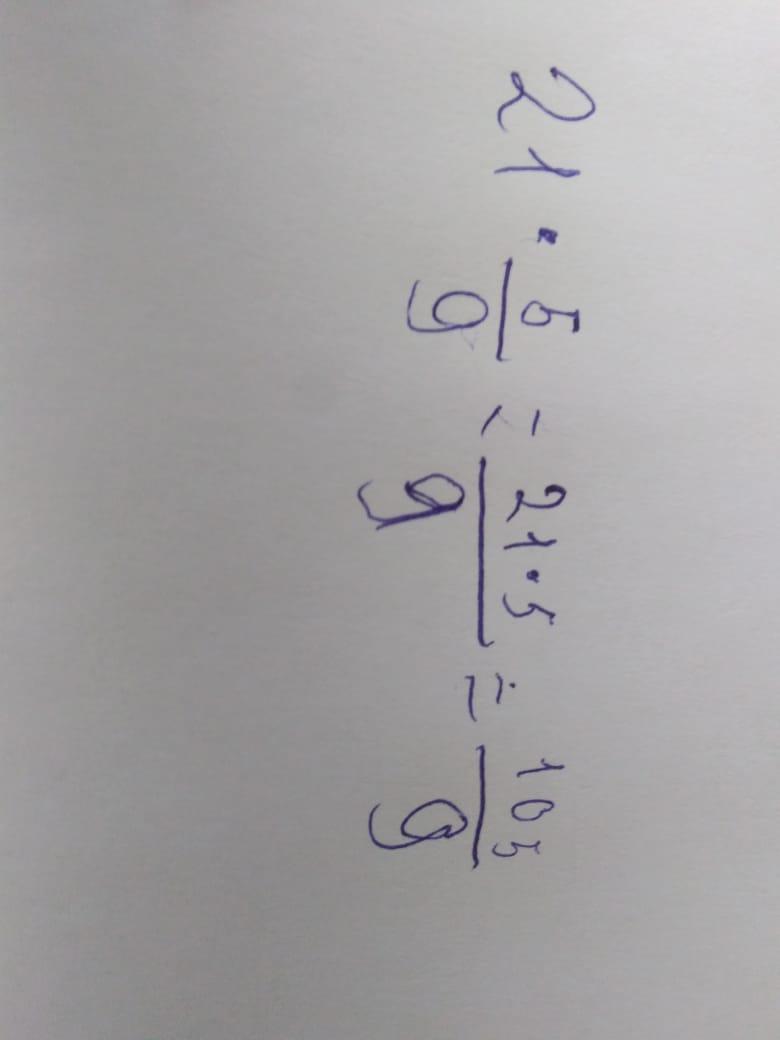 21 · 5/9 = 21·5/9 = 105/9